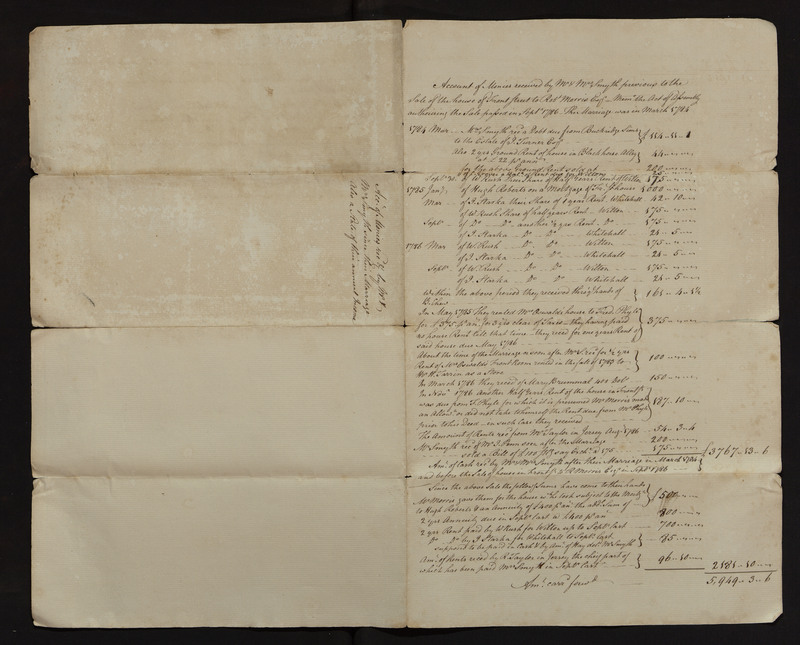 Account of Monies received by Mr & Mrs Smyth previous to the
Sale of the house of Front Street to Robt Morris Esqr — the Act of Assembly
authorizing the Sale passed in Septr 1786. The Marriage was in March 1784
1784 Mar Mr Smyth recd a Debt due from Sims
to the Estate of J. Turner Esqr
Also 2 yrs Ground Rent of houses in Blackhorse Alley
at £22 pr ann 44
for the above Ground Rent sold at 200
Septr of W. Rush their Share of Half Years Rent of Wilton 175
1785 Jany of Hugh Roberts on a Mortgage of Frt St house 1000
Mar of J. Starka their Share of 1 years Rent Whitehall 42-10
of W. Rush Share of half years Rent Wilton 175
Septr of Do Do another ½ yrs Rent Do 175
of J. Starka Do Do Whitehall 21-5
1786 Mar of W. Rush Do Do Wilton 175
of J. Starka Do Do Whitehall 21-5
Septr of W. Rush Do Do Wilton 175
of J. Starka Do Do Whitehall 21-5
Within the above period they received thro' hands of
In May 1785 They rented Mrs Oswalds house to Fredk Phyle
for £375 pr ann for 3 yrs clear of Taxes — they having paid 375
no house Rent till that time — they recd for one years Rent of
said house due May 1786
About the time of the Marriage or soon after Mr S recd for ½ yrs
Rent of Mrs Oswalds Front Room rented in the fall of 1783 to 100
as a Store
In March 1786 they recd of Mary Brummal 400 Dolls 150
In Novr 1786 Another Half Years Rent of the house in Front St
was due from F. Phyle for which it is presumed Mr Morris made 187-10
an allowe or did not take to himself the Rent due from Mr Phyle
prior to his Deed — in such case they received
The Amount of Rents recd from Mr Taylor in Jersey Augt 1786 54-3-4
Mr Smyth recd of Mr J. Penn soon after the Marriage 200
sold a Bill of £100 Stg say Exche a 175 175
Amt of Cash recd by Mr & Mrs Smyth after their Marriage in March 1784 £3767-13-6
and before the Sale of house in Front St to R. Morris Esqr in Septr 1786
Since the above Sale the follg Sums have come to their hands
Mr Morris gave them for the house wch he took subject to the Mortge £500
to Hugh Roberts & an annuity of £400 pr ann the addl Sum of
2 yrs Annuity due in Septr last is £400 pr ann 800
2 yrs Rent paid by W. Rush for Wilton up to Septr last 700
Do Do by J. Starka for Whitehall to Septr last 85
supposed to be paid in Cash & by Amt of Hay deld Mr Smyth
Amt of Rents recd by R. Taylor in Jersey the chief part of 96-10
which has been paid Mr Smyth in Septr last 2181-10
5,949-3-6
Amt carrd forwd
Acct of Money recd by Mr &
Mrs Smyth since their Marriage
Also a State of their annual Income